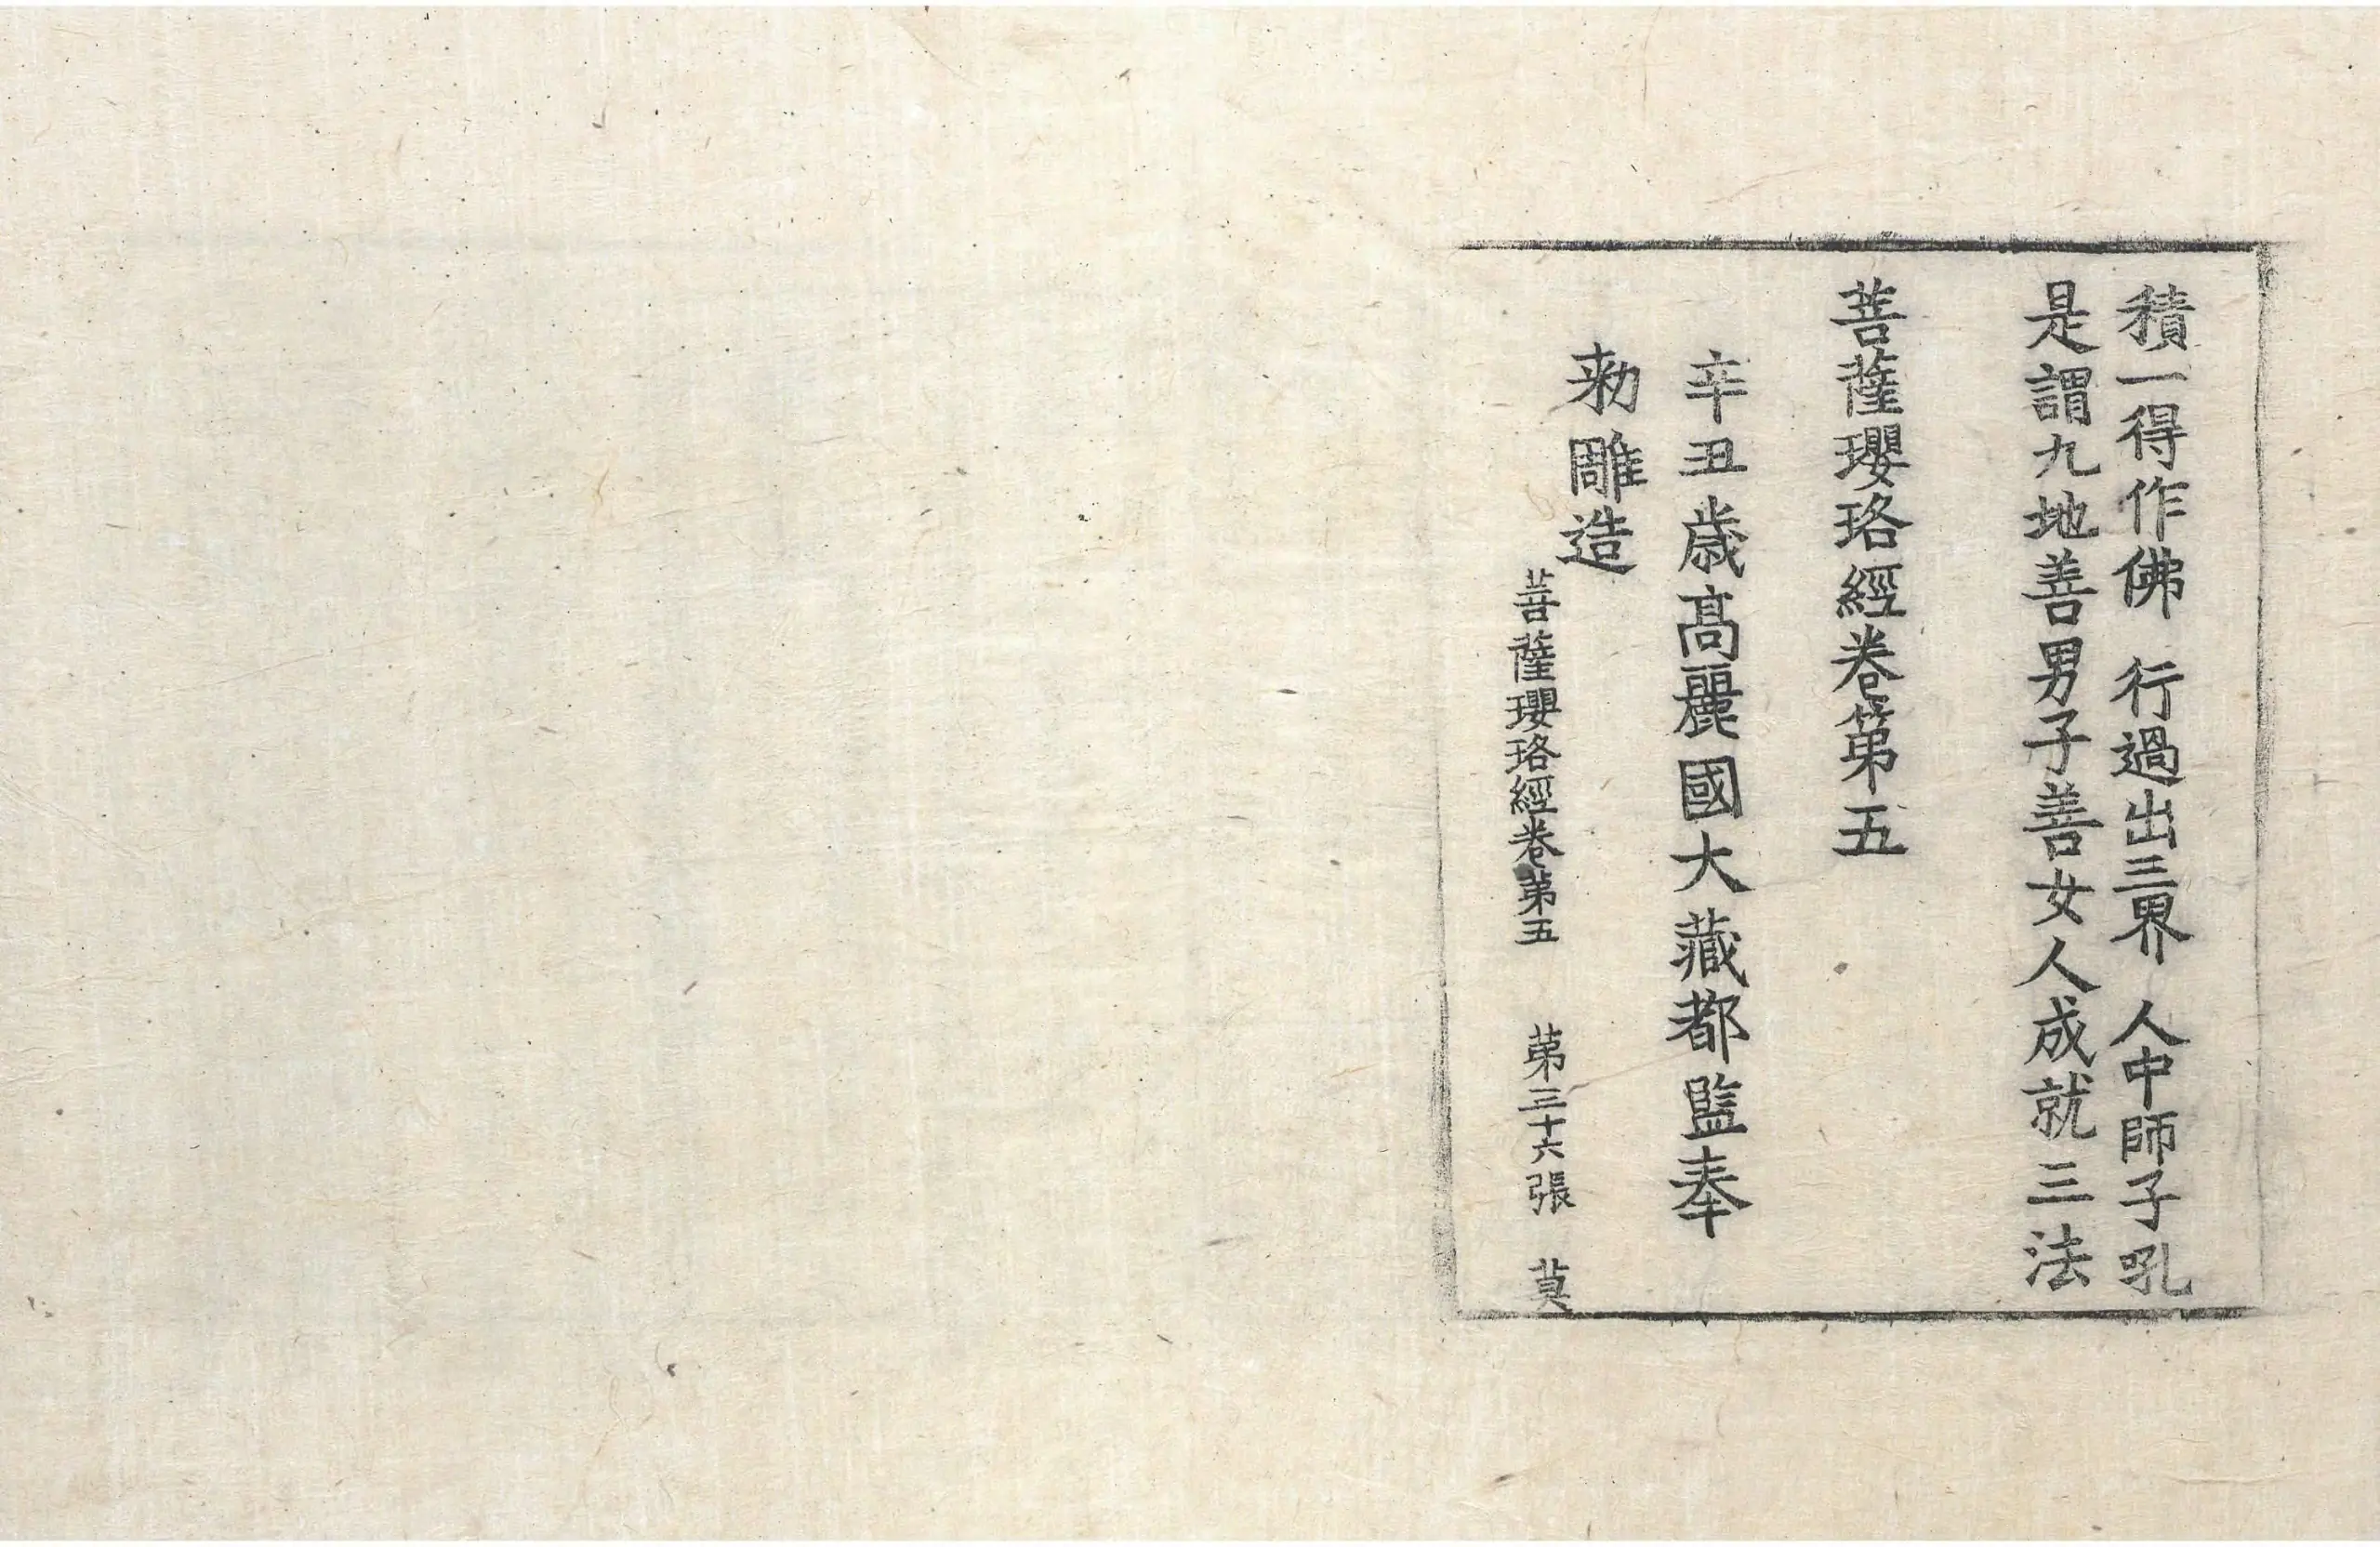 積一得作佛 行過出三界 人中師子吼
是謂九地善男子善女人成就三法
菩薩瓔珞經卷第五
辛丑歲高麗國大藏都監奉
勑雕造
菩薩瓔珞經卷第五 第三十六張 莫